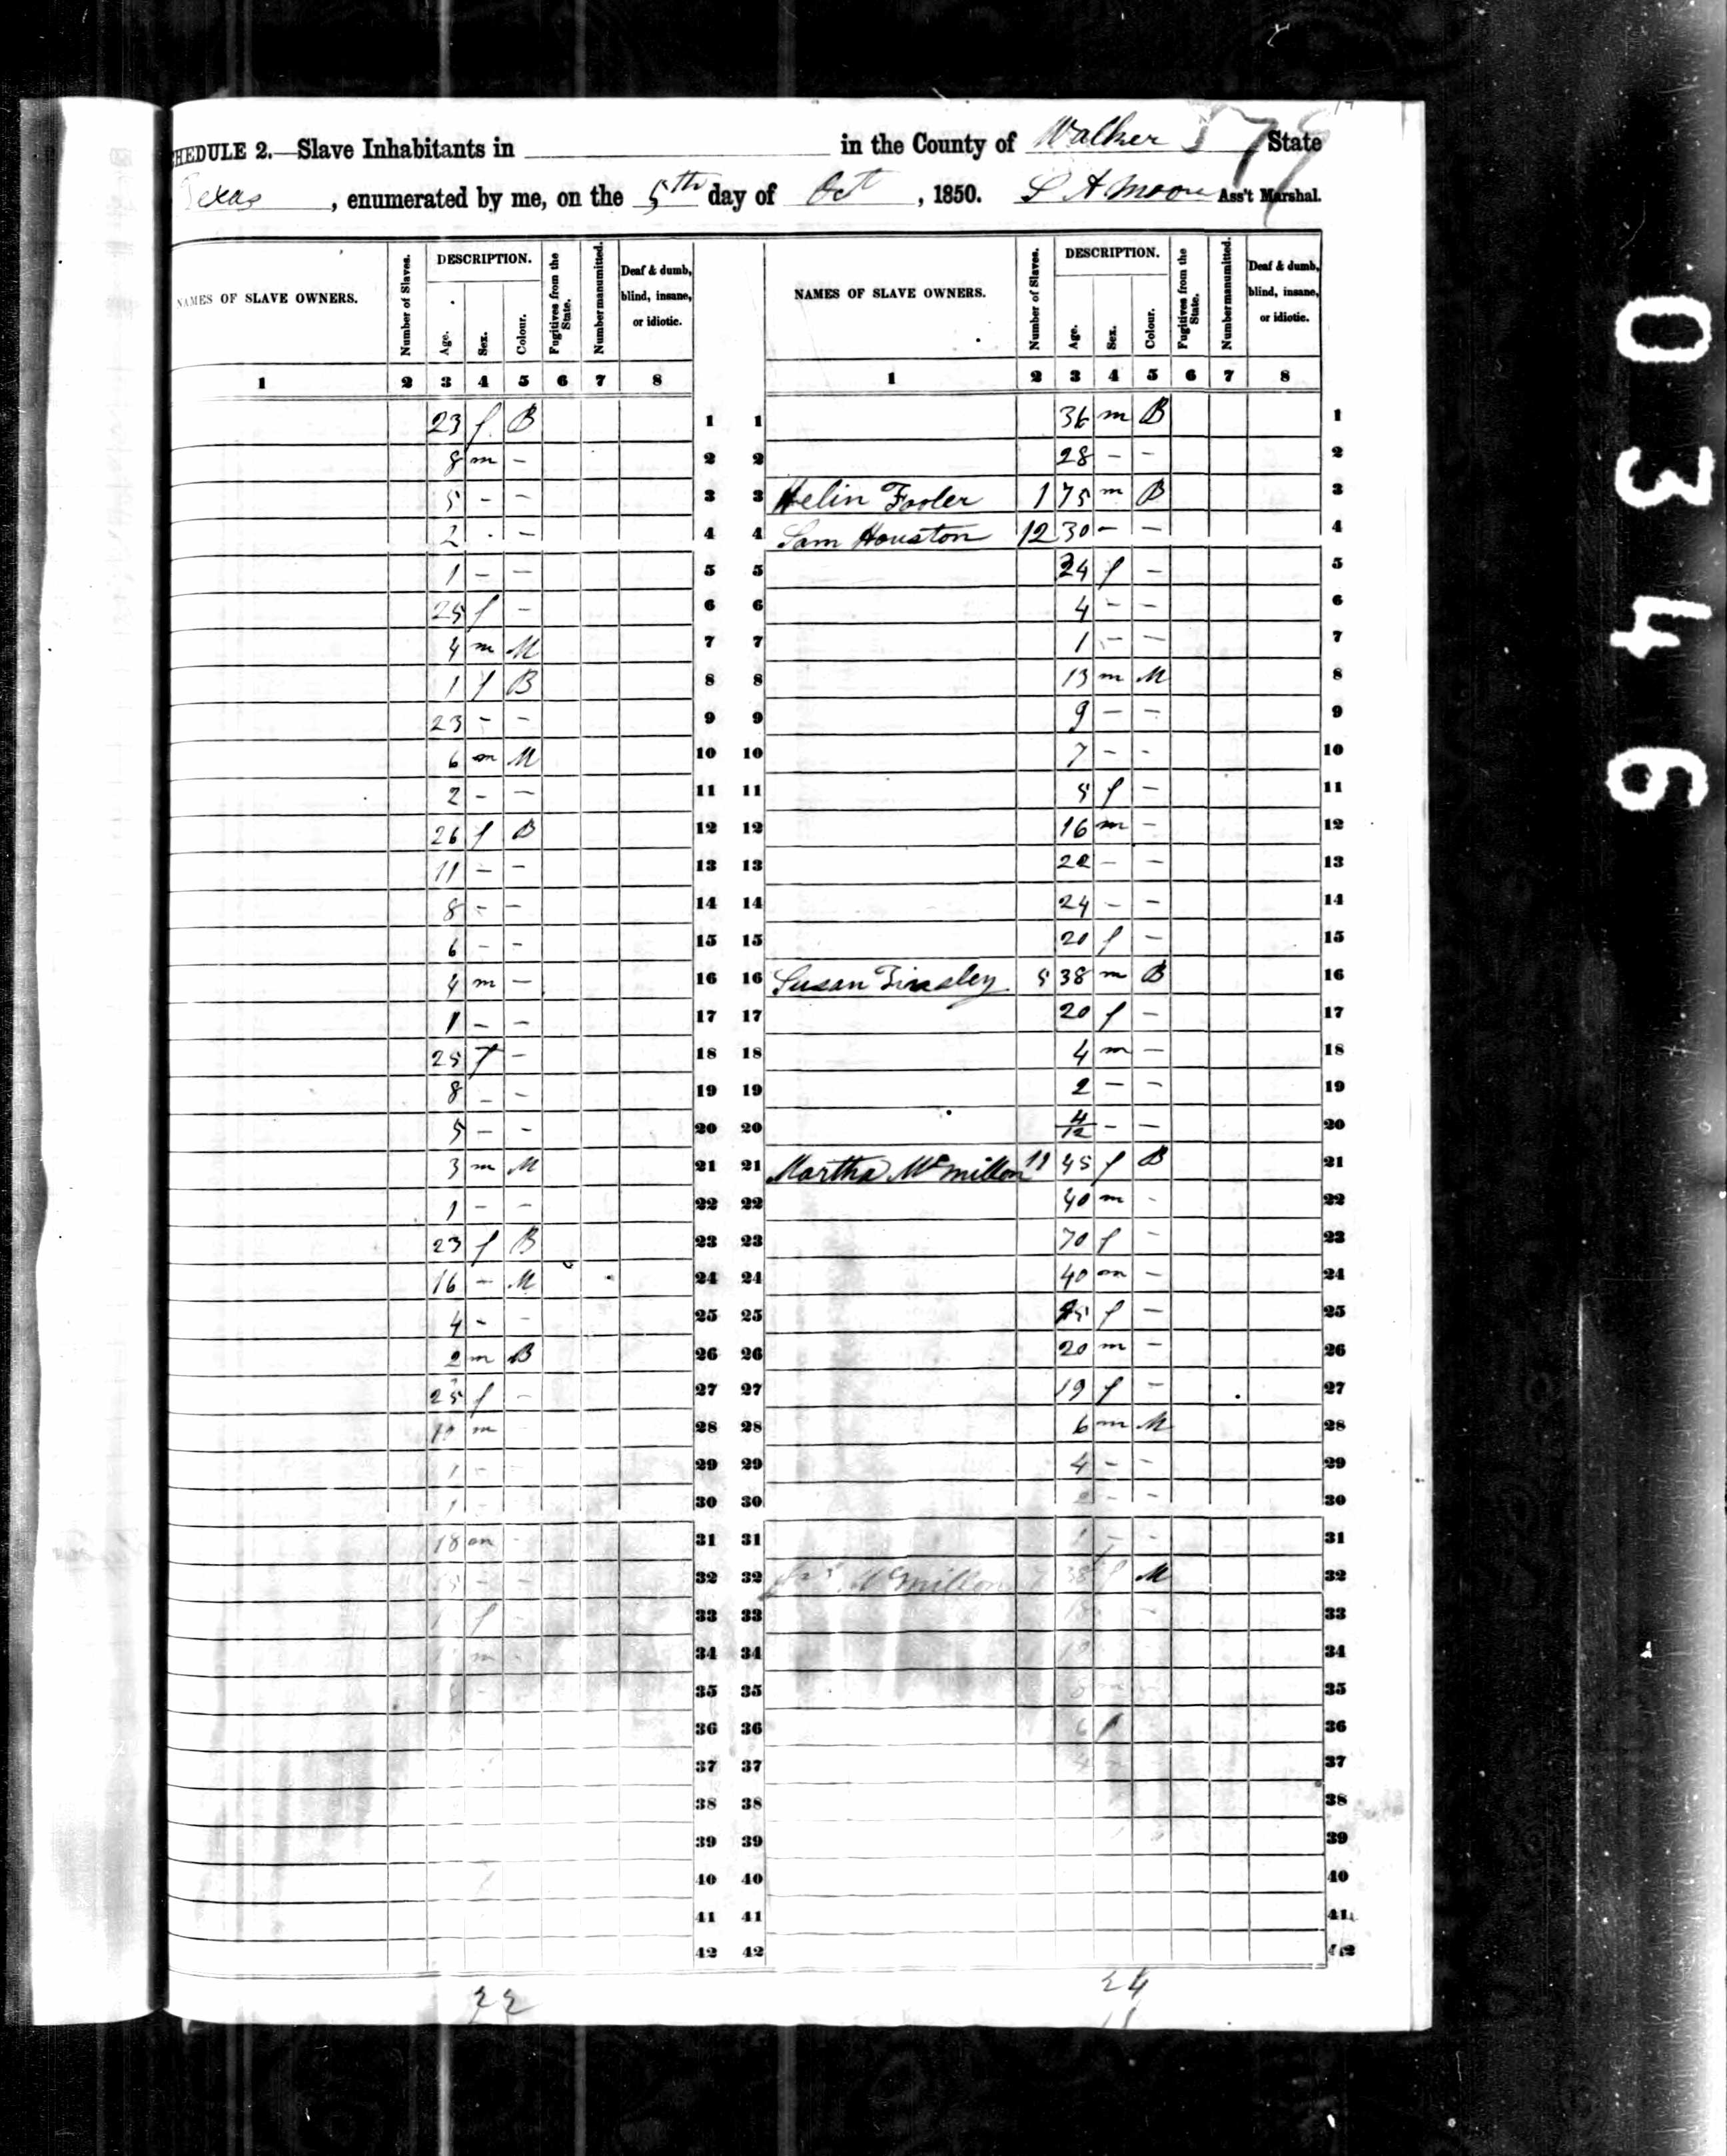 HEDULE 2.—Slave Inhabitants in in the County of Walker State 579
Texas, enumerated by me, on the 5th day of Oct, 1850. S A Moore Ass't Marshal.
NAMES OF SLAVE OWNERS. Number of Slaves. DESCRIPTION. Age. Sex. Colour. Fugitives from the State. Number manumitted. Deaf & dumb, blind, insane, or idiotic. NAMES OF SLAVE OWNERS. Number of Slaves. DESCRIPTION. Age. Sex. Colour. Fugitives from the State. Number manumitted. Deaf & dumb, blind, insane, or idiotic.
1 2 3 4 5 6 7 8 1 2 3 4 5 6 7 8
23 f B 1 1 36 m B 1
8 m - 2 2 28 - - 2
5 - - 3 3 Helin Fooler 1 75 m B 3
2 - - 4 4 Sam Houston 12 30 - - 4
1 - - 5 5 24 f - 5
25 f - 6 6 4 - - 6
4 m M 7 7 1 - - 7
1 f B 8 8 13 m M 8
23 - - 9 9 9 - - 9
6 m M 10 10 7 - - 10
2 - - 11 11 5 f - 11
26 f B 12 12 16 m - 12
11 - - 13 13 22 - - 13
8 - - 14 14 24 - - 14
6 - - 15 15 20 f - 15
4 m - 16 16 Susan Tinsley 5 38 m B 16
1 - - 17 17 20 f - 17
25 f - 18 18 4 m - 18
8 - - 19 19 2 - - 19
5 - - 20 20 4/12 - - 20
3 m M 21 21 Martha McMillon 11 45 f B 21
1 - - 22 22 40 m - 22
23 f B 23 23 70 f - 23
16 - M 24 24 40 m - 24
4 - - 25 25 f - 25
2 m B 26 26 20 m - 26
25 f - 27 27 19 f - 27
m 28 28 6 m M 28
1 - - 29 29 4 - - 29
1 - 30 30 - - 30
18 m - 31 31 1 - - 31
- - 32 32 McMillon f M 32
f - 33 33 - 33
m - 34 34 34
35 35 35
36 36 6 f 36
37 37 4 37
38 38 38
39 39 39
40 40 40
41 41 41
42 42 42
22 24
11
0346